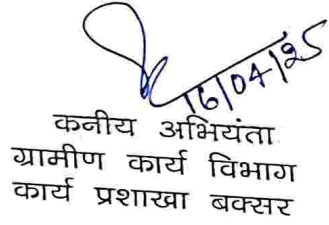 16/04/25
कनीय अभियंता
ग्रामीण कार्य विभाग
कार्य प्रशाखा बक्सर